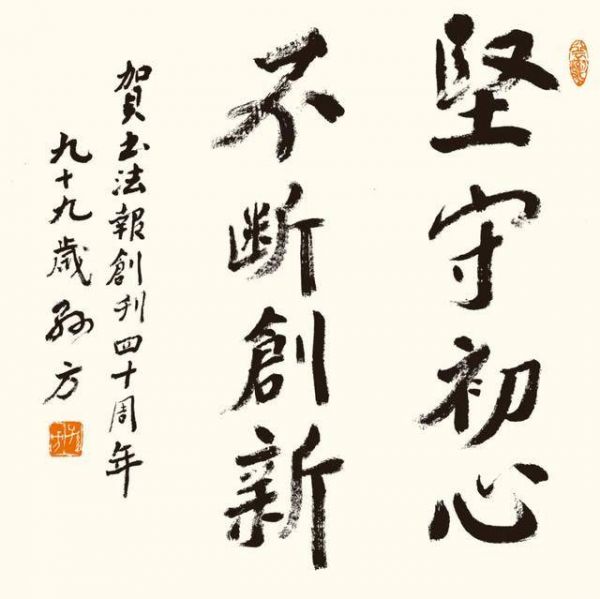 堅守初心
不断創新
賀书法報創刊四十周年
九十九歲孙方